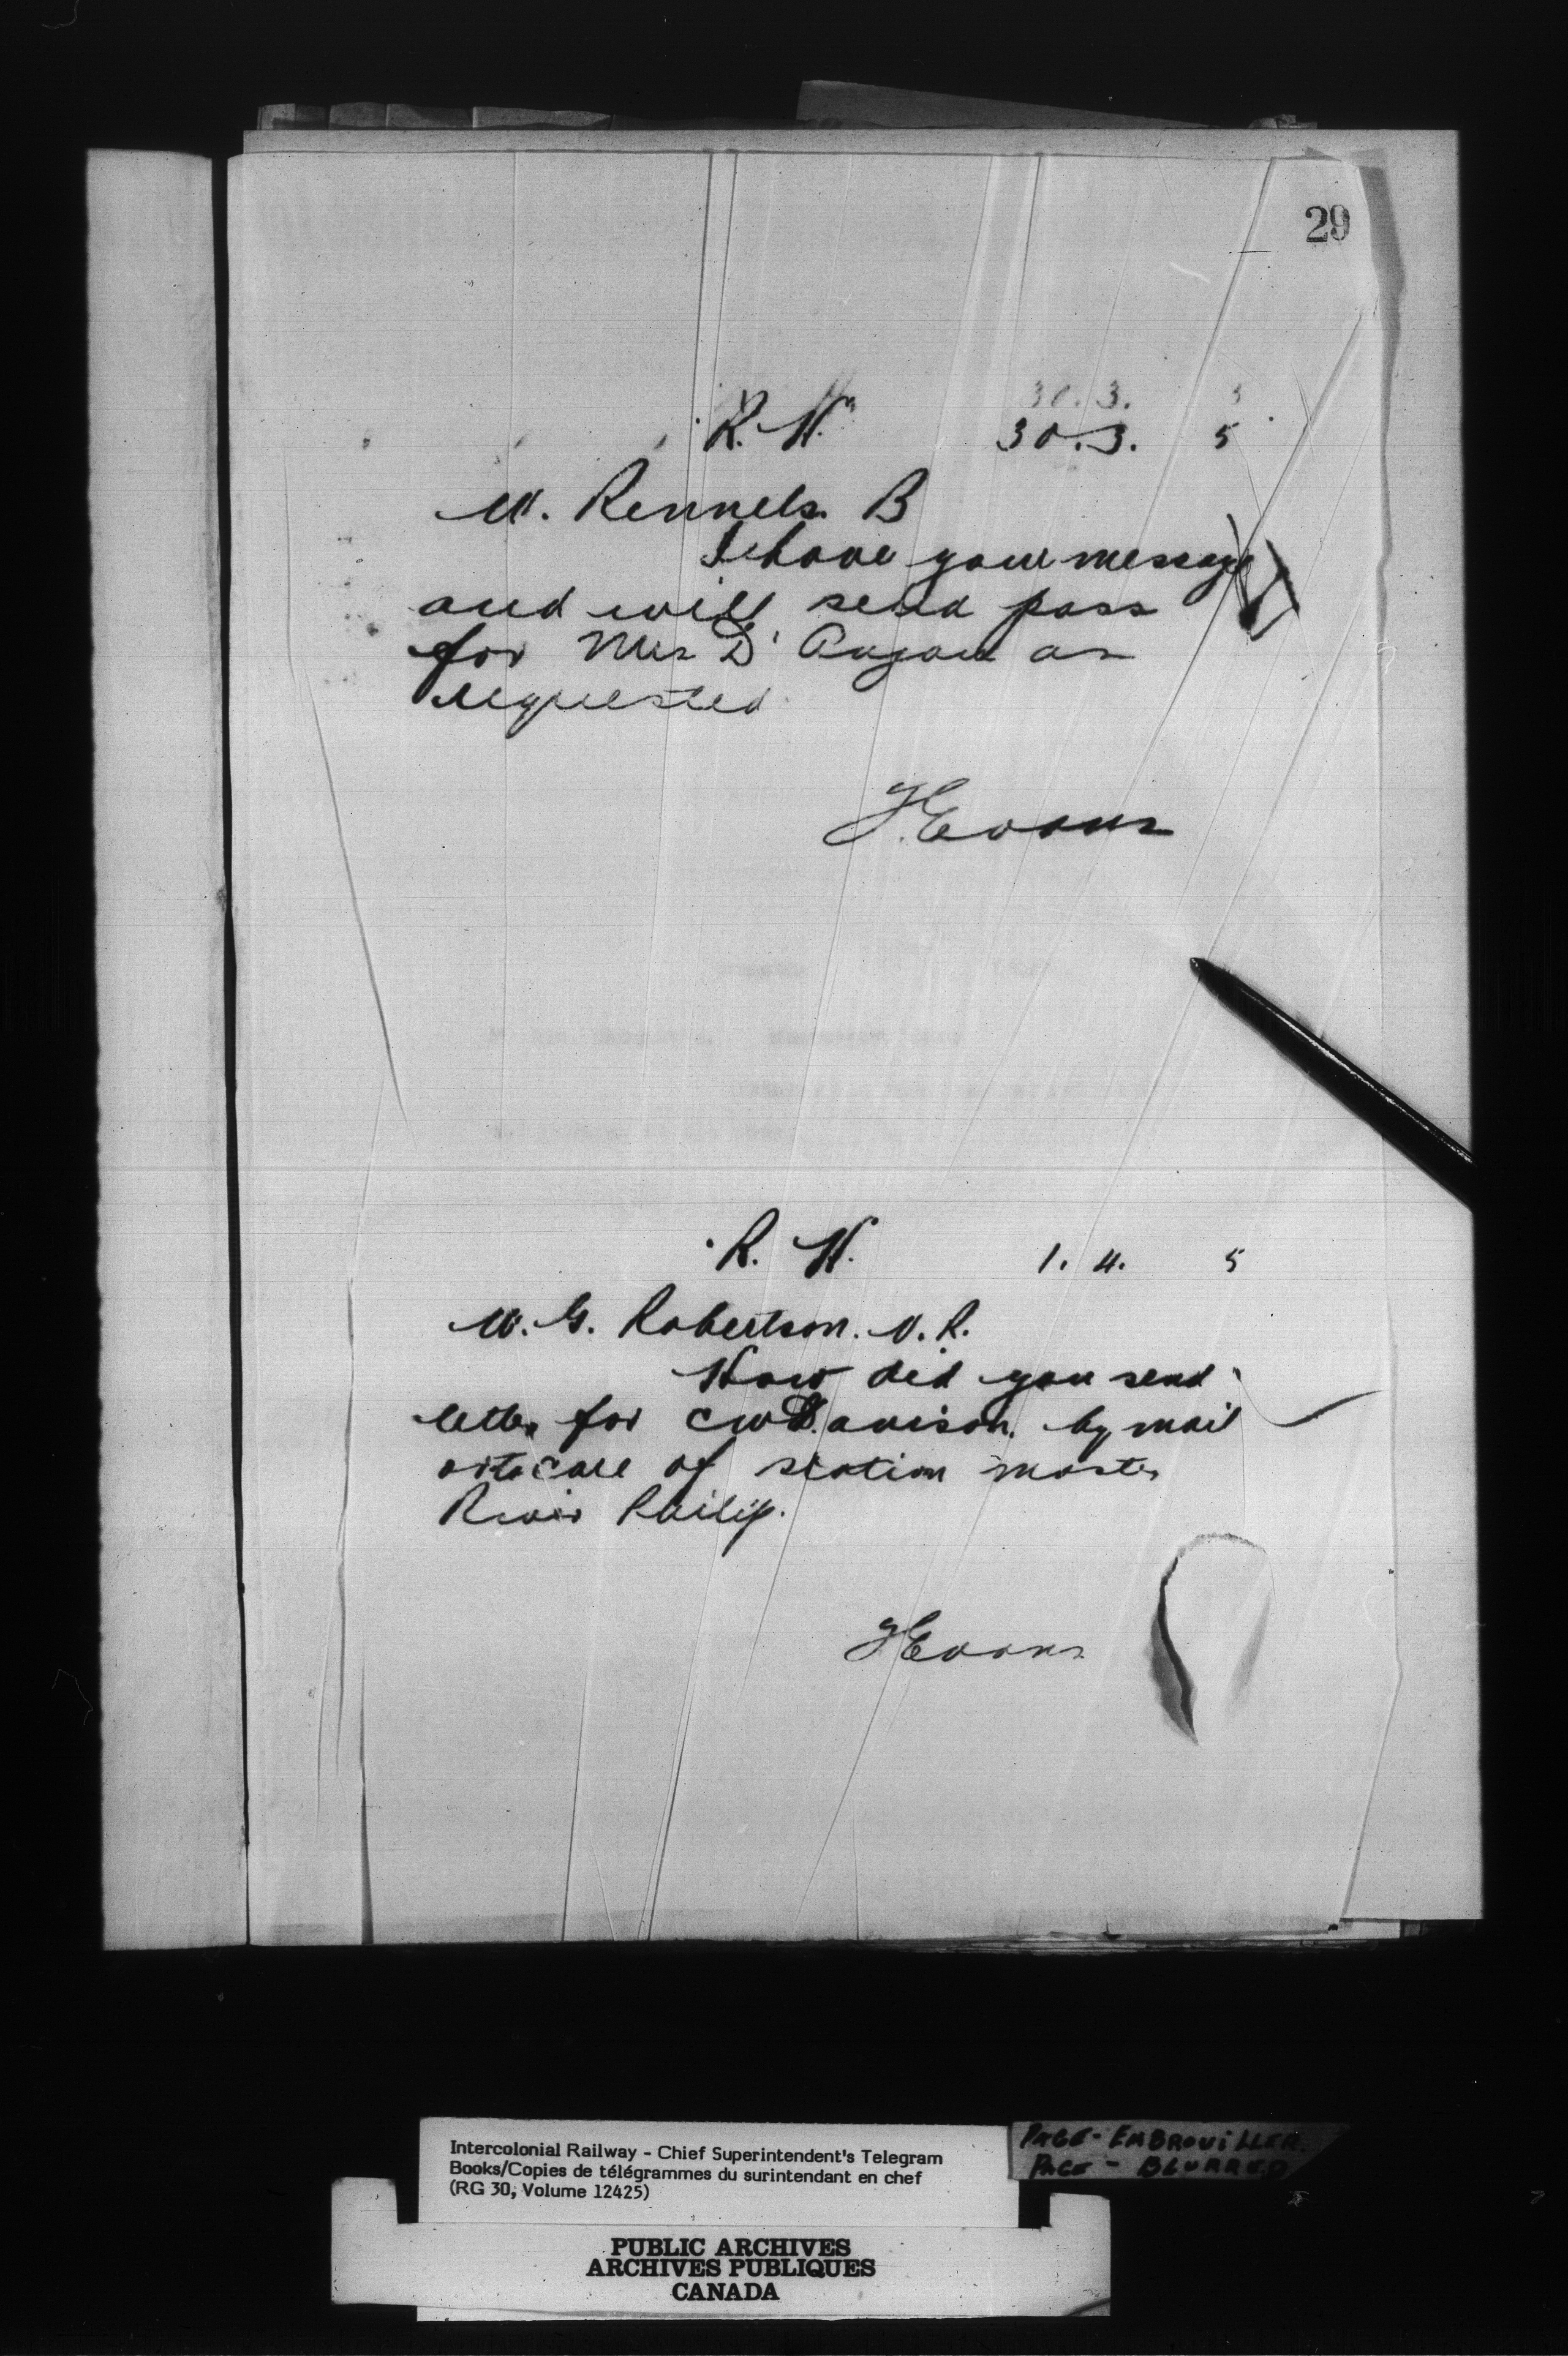 29
30.3. 5
R. H. 30.3. 5
W. Rennels. B
I have your message
and will send pass
for Mrs D' Anjou as
requested
J. Evans
R. H. 1. 4. 5
W. G. Robertson. N. R.
How did you send
letter for CW Davison. by mail
or to care of station master
River Philip.
J Evans
Intercolonial Railway - Chief Superintendent's Telegram
Books/Copies de télégrammes du surintendant en chef
(RG 30, Volume 12425)
PAGE - EMBROUILLER.
PAGE - BLURRED
PUBLIC ARCHIVES
ARCHIVES PUBLIQUES
CANADA